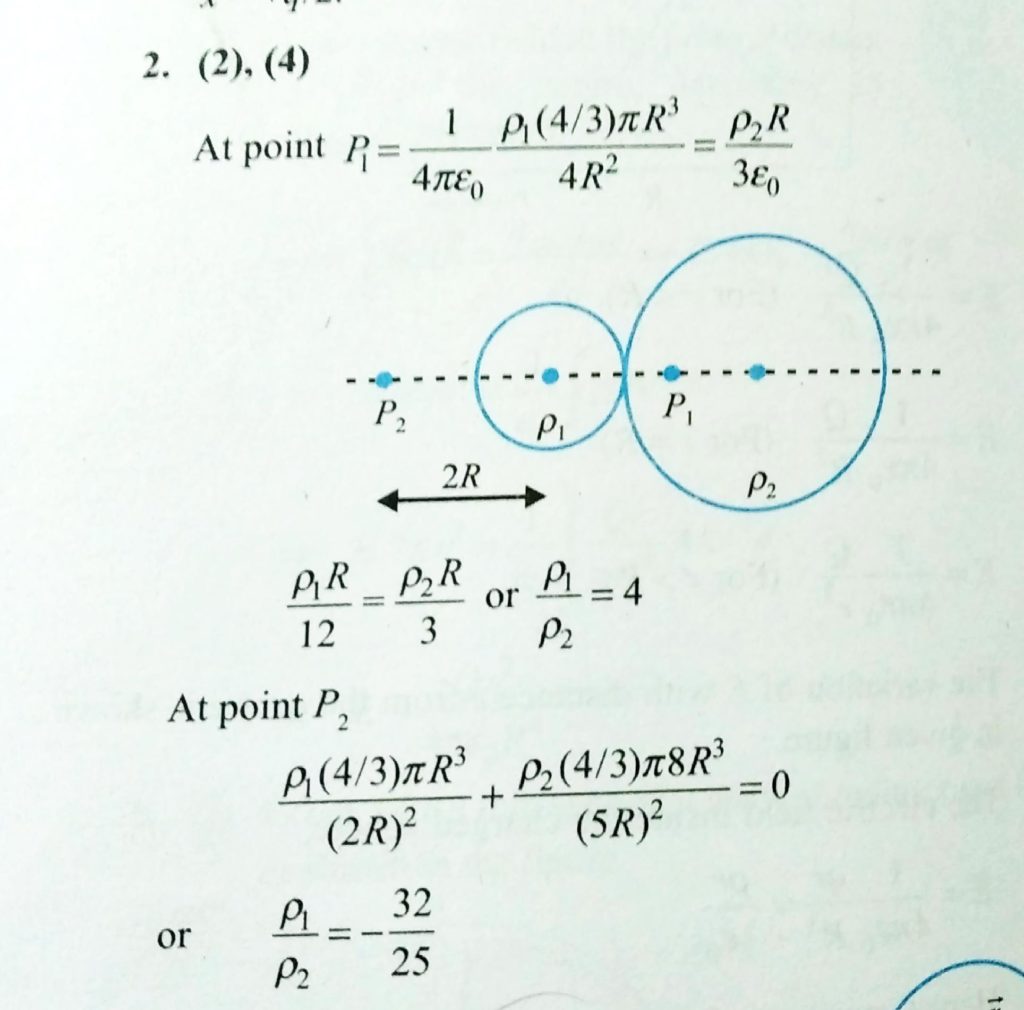 2. (2), (4)
At point P₁ = 1/4πε₀ ρ₁(4/3)πR³/4R² = ρ₂R/3ε₀
P₂ ρ₁ P₁ ρ₂
2R
ρ₁R/12 = ρ₂R/3 or ρ₁/ρ₂ = 4
At point P₂
ρ₁(4/3)πR³/(2R)² + ρ₂(4/3)π8R³/(5R)² = 0
or ρ₁/ρ₂ = -32/25